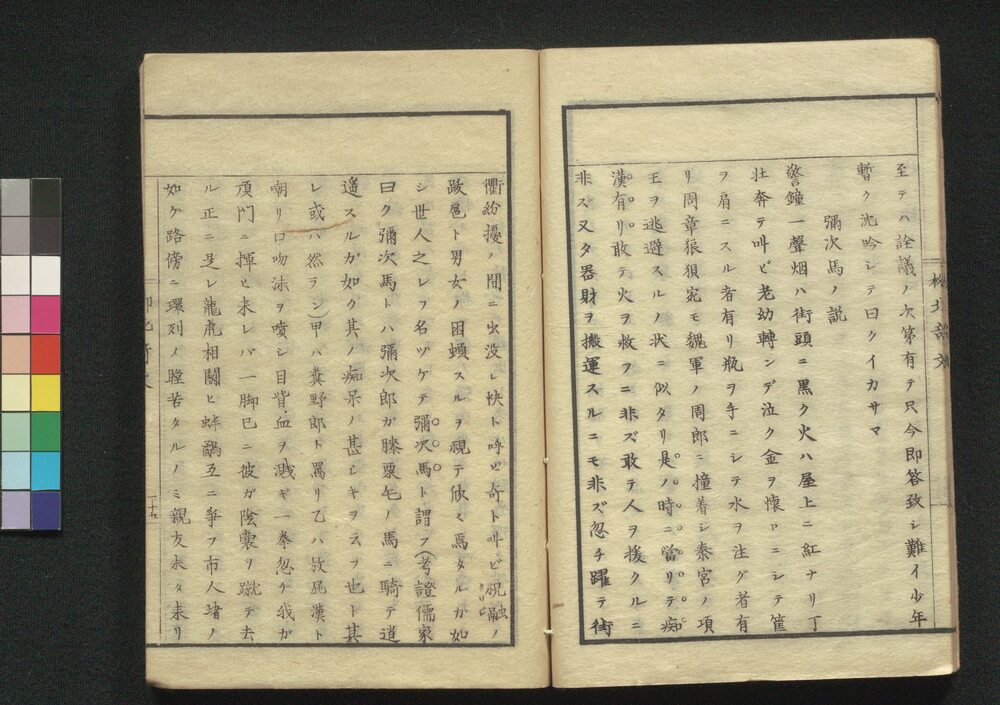 至テハ詮議ノ次第有テ尺今即答致シ難イ少年
暫ク沈吟シテ曰クイカサマ
彌次馬ノ説
警鐘一聲烟ハ街頭ニ黒ク火ハ屋上ニ紅ナリ丁
壮奔テ叫ビ老幼轉ンデ泣ク金ヲ懐ロニシテ筐
ヲ肩ニスル者有リ瓶ヲ手ニシテ水ヲ注グ者有
リ周章狼狽宛モ魏軍ノ周郎ニ撞着シ秦宮ノ項
王ヲ逃避スルノ状ニ似タリ是ノ時ニ當リテ痴
漢有リ敢テ火ヲ救フニ非ズ敢テ人ヲ援クルニ
非ズ又タ器財ヲ搬運スルニモ非ズ忽チ躍テ街
衢紛擾ノ間ニ出没シ快ト呼ビ奇ト叫ビ祝融ノ
跋扈ト男女ノ困頓スルヲ視テ欣々焉タルガ如
シ世人之レヲ名ヅケテ彌次馬ト謂フ(考證儒家
曰ク彌次馬ト八彌次郎ガ膝栗毛ノ馬ニ騎テ逍
遥スルガ如ク其ノ痴呆ノ甚シキヲ云フ也ト其
レ或ハ然ラン)甲ハ糞野郎ト罵リ乙ハ放屁漢ト
嘲リ口吻沫ヲ噴シ目眥血ヲ濺ギ一拳忽チ我ガ
頂門ニ揮ヒ来レバ一脚已ニ彼ガ陰嚢ヲ蹴テ去
ル正ニ是レ龍虎相闘ヒ蚌鷸互ニ爭フ市人堵ノ
如ク路傍ニ環列メ瞠若タルノミ親友未タ来リ
一十五